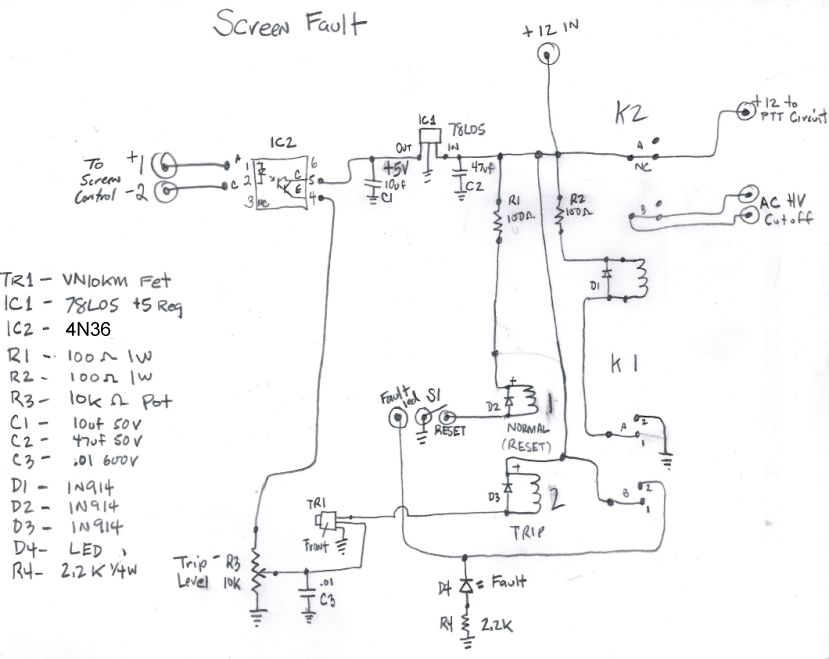 Screen Fault
+12 IN
K2
+12 to
PTT Circuit
A
NC
IC1
78L05
OUT
IN
IC2
To
Screen
Control
+1
-2
A
C
1
2
3
NC
C
E
6
5
4
+5V
10uf
C1
47uf
C2
R1
100Ω
R2
100Ω
B
AC HV
Cutoff
D1
K1
TR1 - VN10KM Fet
IC1 - 78L05 +5 Reg
IC2 - 4N36
R1 - 100Ω 1W
R2 - 100Ω 1W
R3 - 10K Ω Pot
C1 - 10uf 50V
C2 - 47uf 50V
C3 - .01 600V
D1 - 1N914
D2 - 1N914
D3 - 1N914
D4 - LED
R4 - 2.2K 1/4W
Fault
led
S1
RESET
+
D2
1
NORMAL
(RESET)
A
2
1
+
D3
2
TRIP
B
2
1
TR1
Front
Trip
Level
R3
10K
.01
C3
D4
= Fault
R4
2.2K